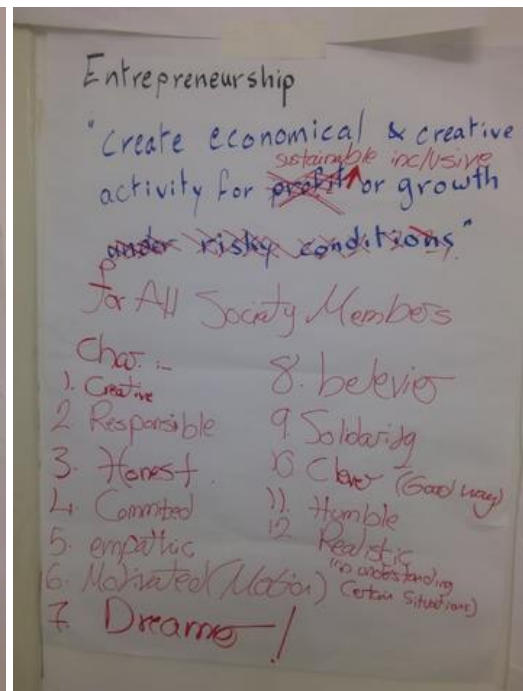 Entrepreneurship
"Create economical & creative
sustainable inclusive
activity for profit or growth
under risky conditions"
For All Society Members
Char. :-
1. Creative
2. Responsible
3. Honest.
4. Commited
5. empathic
6. Motivated (Motion)
7. Dreamer!
8. belevier
9. Solidaridg
10 Clever (Good way)
11. Humble
12 Realistic
(in understanding
Certain Situations)